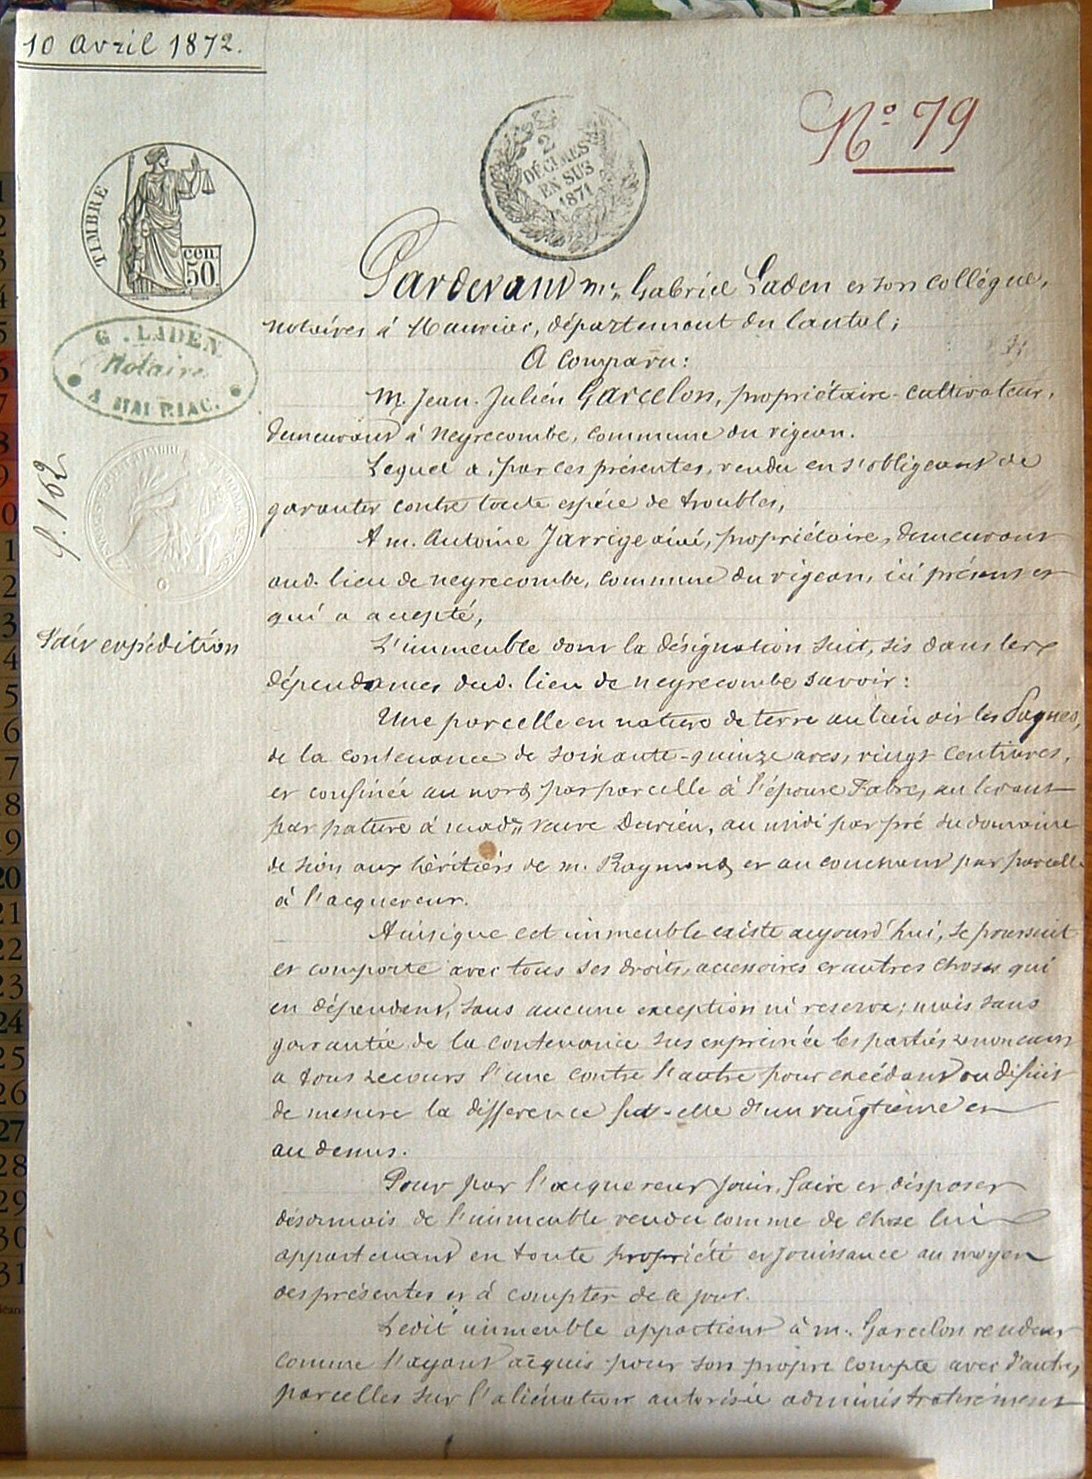 10 Avril 1872.
Nº 79
2
DÉCIMES
EN SUS
1871
TIMBRE
cen.
50.
G. LADEN
Notaire
A MAURIAC.
f. 162
Fait expédition
Pardevant Me. Gabriel Laden et son collègue,
notaires à Mauriac, département du Cantal;
A Comparu:
M. Jean-Julien Garcelon, propriétaire-cultivateur,
demeurant à Neyrecombe, commune du vigean.
Lequel a, par ces présentes, vendu en s'obligeant de
garantir contre toute espèce de troubles,
A m. Antoine Jarrige ainé, propriétaire, demeurant
aud. lieu de neyrecombe, commune du vigean, ici présent et
qui a accepté,
L'immeuble dont la désignation suit, sis dans les
dépendances dud. lieu de neyrecombe savoir:
Une parcelle en nature de terre au lieu dit les
de la contenance de soixante-quinze ares, vingt centiares,
et confinée au nord par parcelle à l'épouse Fabre, au levant
par pature à mad. veuve Durieu, au midi par pré du domaine
de Sion aux héritiers de m. Raymond et au couchant par parcelle
à l'acquereur.
Ainsi que cet immeuble existe aujourd'hui, se poursuit
et comporte avec tous ses droits, accessoires et autres choses qui
en dépendent, sans aucune exception ni reserve; mais sans
garantie de la contenance sus exprimée les parties renonçant
a tous recours l'une contre l'autre pour excédant ou déficit
de mesure la difference fut-elle d'un vingtième et
au dessus.
Pour par l'acquereur jouir, faire et disposer
désormais de l'immeuble vendu comme de chose lui
appartenant en toute propriété et jouissance au moyen
des présentes et à compter de ce jour.
Ledit immeuble appartient à m. Garcelon vendeur
comme l'ayant acquis pour son propre compte avec d'autres
parcelles sur l'aliénation autorisée administrativement